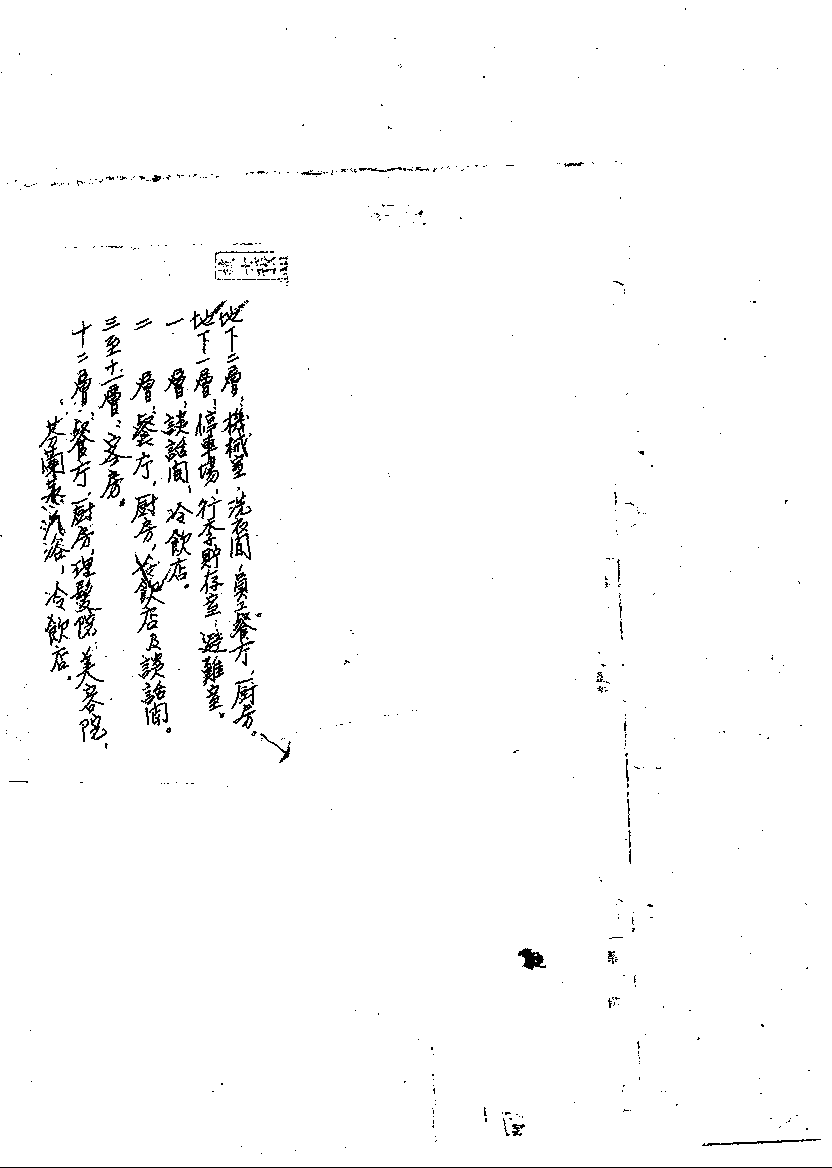 地下二層：機械室，洗衣間，員工餐厅，厨房。
地下一層：停車場，行李貯存室，避難室。
一層：談話間，冷飲店。
二層：餐厅，厨房，冷飲店及談話間。
三至十一層：客房。
十二層：餐厅，厨房，理髮院，美容院，
芬蘭蒸汽浴，冷飲店。